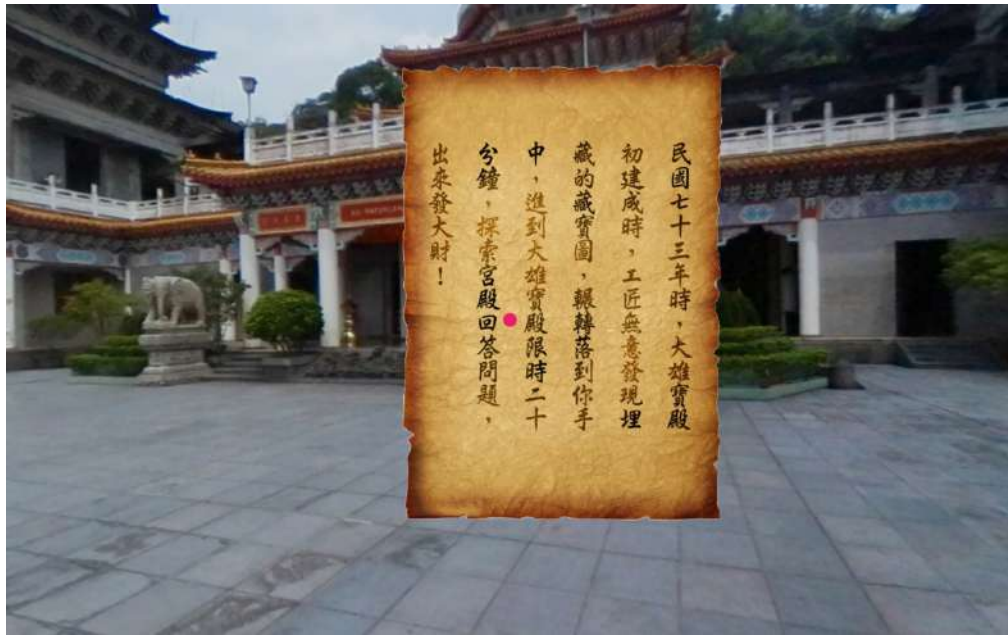 民國七十三年時，大雄寶殿
初建成時，工匠無意發現埋
藏的藏寶圖，輾轉落到你手
中，進到大雄寶殿限時二十
分鐘，探索宮殿回答問題，
出來發大財！